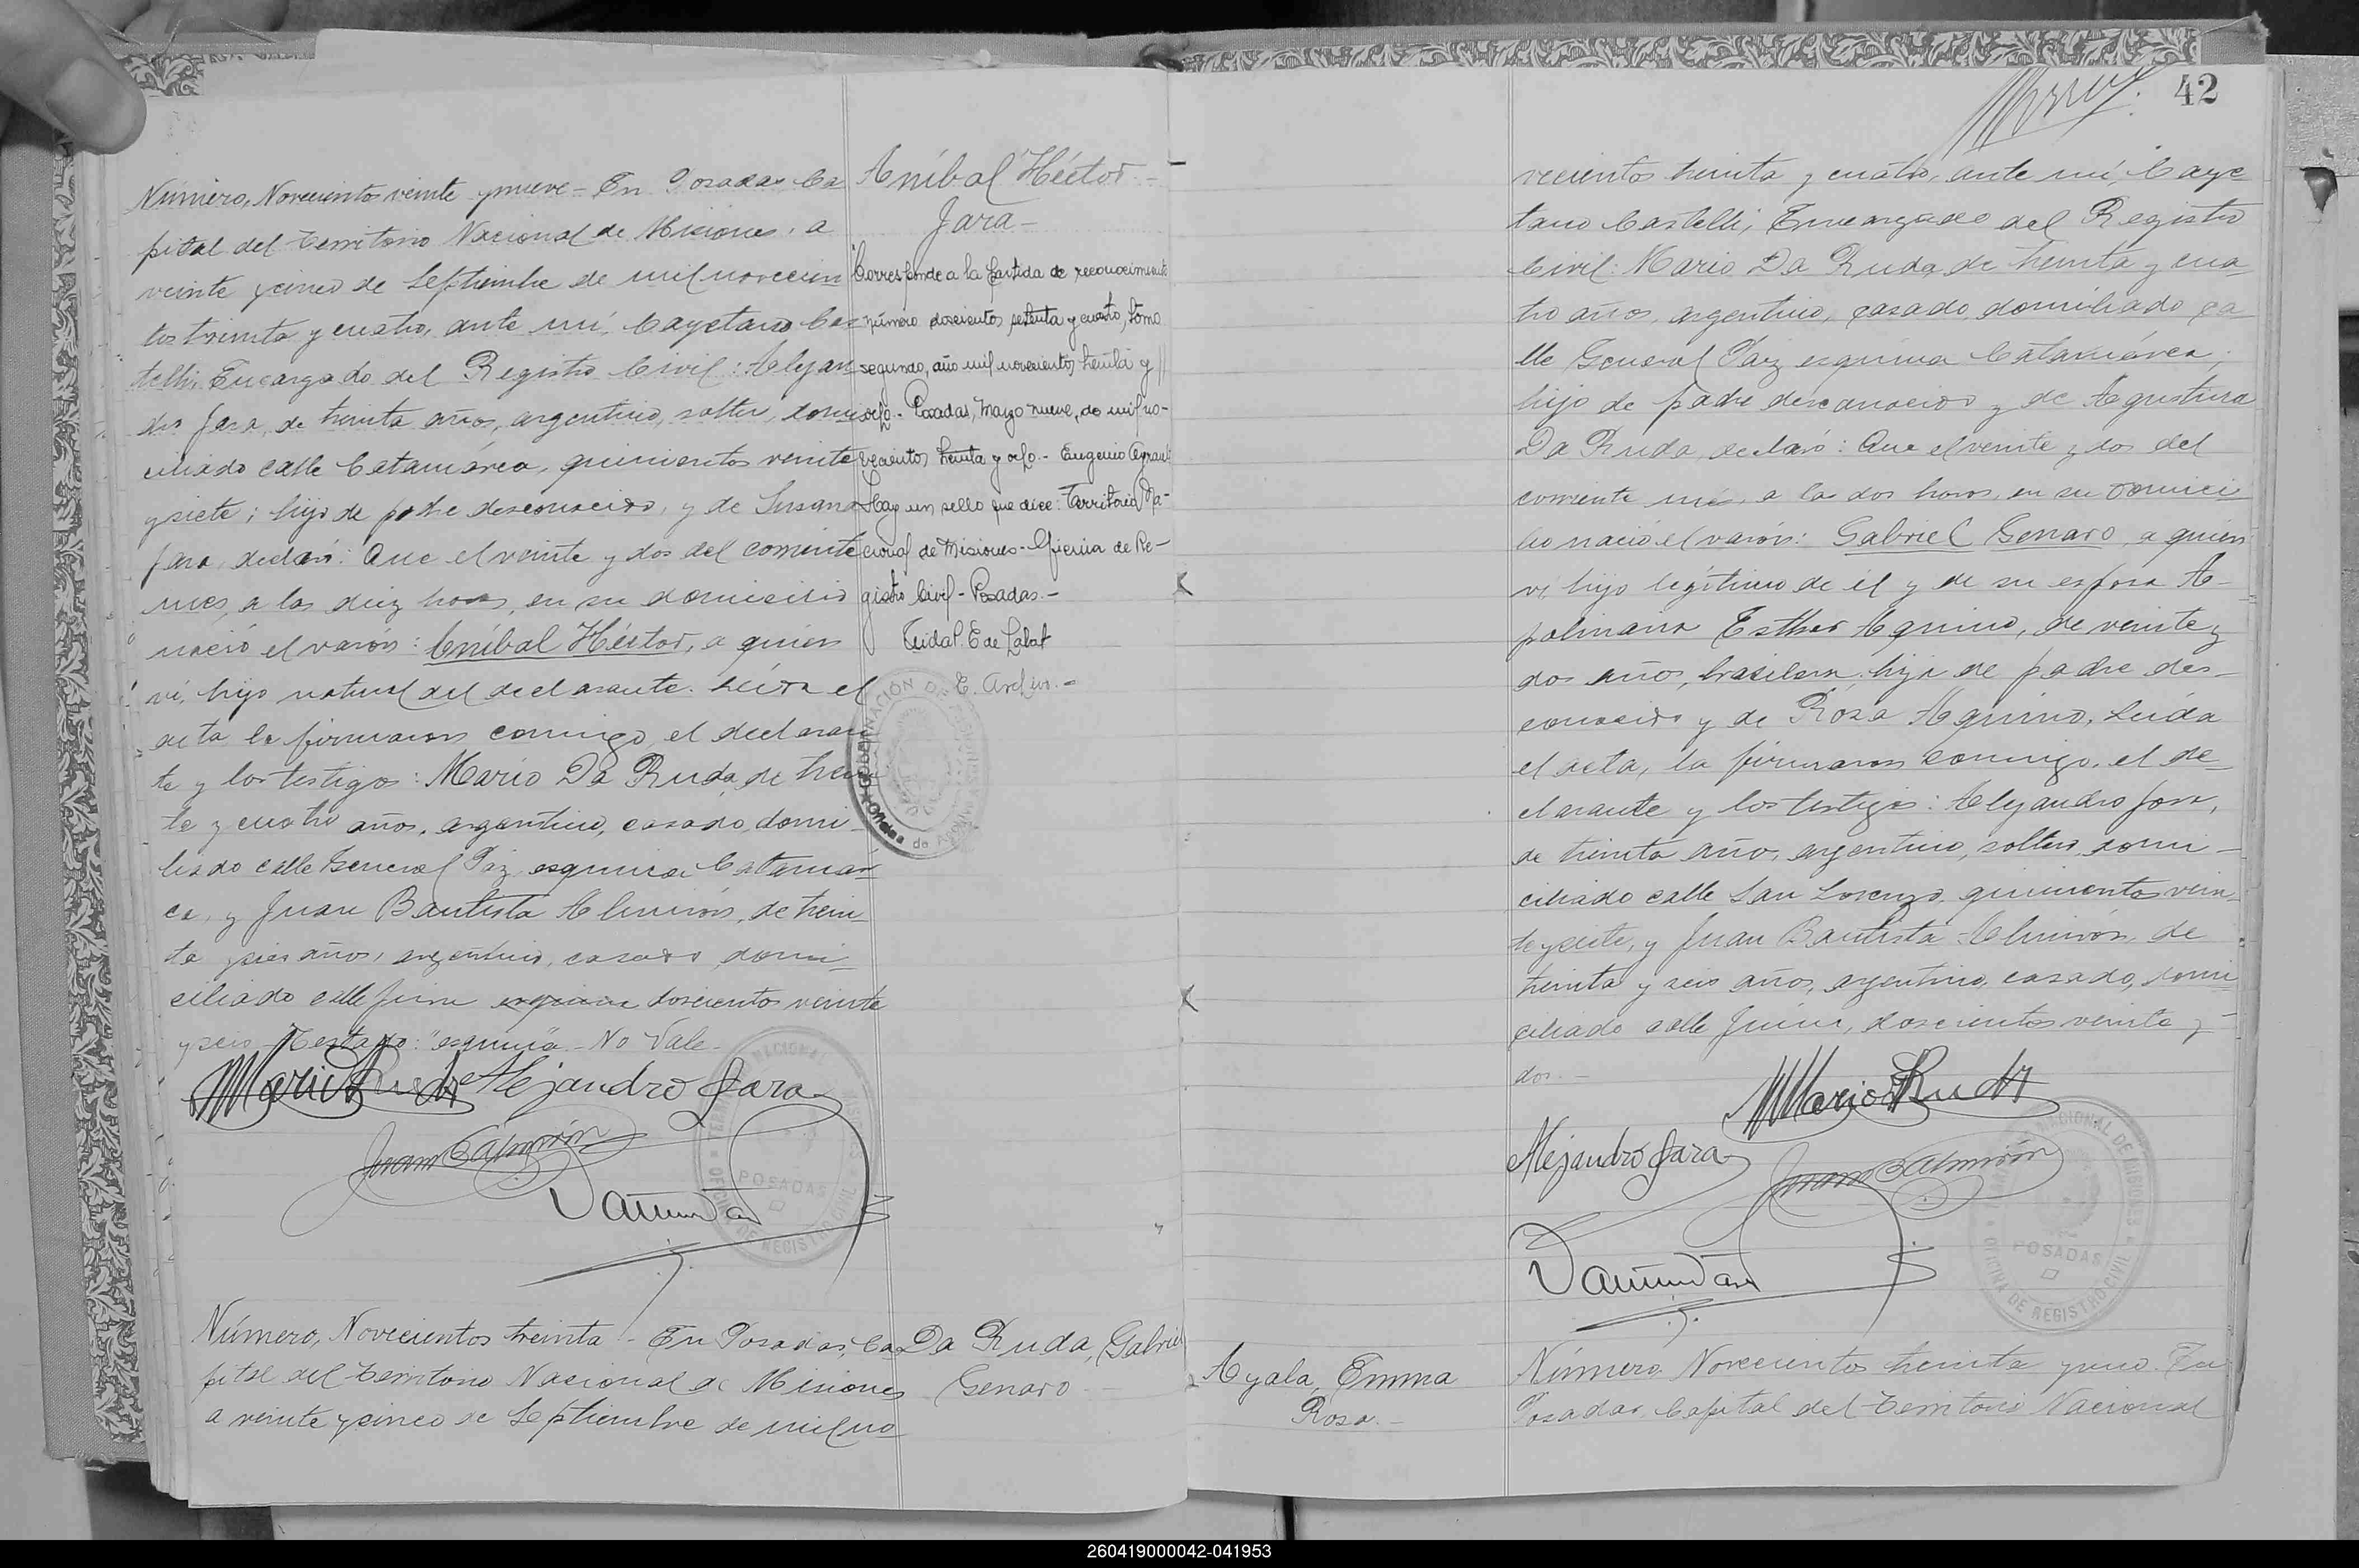 Número, Novecientos veinte y nueve - En Posadas, Ca
pital del Territorio Nacional de Misiones, a
veinte y cinco de Septiembre de mil novecien
tos treinta y cuatro, ante mí, Cayetano Cas
telli, Encargado del Registro Civil: Alejan
dro Jara, de treinta años, argentino, solter, domi
ciliado calle Catamarca, quinientos veinte
y siete; hijo de padre desconocido, y de Susana
Jara, declaró: Que el veinte y dos del corriente
mes, a las diez horas, en su domicilio
nació el varón: Aníbal Héctor, a quien
ví, hijo natural del declarante. Leída el
acta la firmaron conmigo, el declaran
te y los testigos: Mario Da Ruda, de trein
ta y cuatro años, argentino, casado, domi
liado calle General Paz esquina Catamar
ca, y Juan Bautista Almirón, de trein
ta y seis años, argentino, casado, domi
ciliado calle Junin esquina doscientos veinte
y seis - Testado: "esquina" - No Vale -
Mario Ruda Alejandro Jara
Juan B Almirón
Número, Novecientos treinta - En Posadas, Ca
pital del Territorio Nacional de Misiones
a veinte y cinco de Septiembre de mil no
Aníbal Héctor -
Jara -
Corresponde a la partida de reconocimiento
número doscientos setenta y cuatro, tomo
segundo, año mil novecientos treinta y
ocho.- Posadas, Mayo nueve, de mil no-
vecientos treinta y ocho.- Eugenio
Hay un sello que dice: Territorio Na-
cional de Misiones - Oficina de Re-
gistro Civil - Posadas.-
E. Archivo.-
Da Ruda, Gabriel
Genaro -
42
vecientos treinta y cuatro, ante mí, Caye
tano Castelli, Encargado del Registro
Civil: Mario Da Ruda, de treinta y cua
tro años, argentino, casado, domiciliado ca
lle General Paz esquina Catamarca;
hijo de padre desconocido y de Agustina
Da Ruda, declaró: Que el veinte y dos del
corriente mes, a las dos horas, en su domici
lio nació el varón: Gabriel Genaro, a quien
ví, hijo legítimo de él y de su esposa A-
polinaria Esther Aquino, de veinte y
dos años, brasilera, hija de padre des-
conocido y de Rosa Aquino. Leída
el acta, la firmaron conmigo, el de-
clarante y los testigos: Alejandro Jara,
de treinta año, argentino, soltero, domi-
ciliado calle San Lorenzo, quinientos vein-
te y siete, y Juan Bautista Almirón, de
treinta y seis años, argentino, casado, domi
ciliado calle Junin, doscientos veinte y
dos.-
Mario Ruda
Alejandro Jara
Juan B Almirón
TERRITORIO NACIONAL DE MISIONES
POSADAS
OFICINA DE REGISTRO CIVIL
Ayala, Emma
Rosa.-
Número, Novecientos treinta y uno. En
Posadas, Capital del Territorio Nacional
260419000042-041953